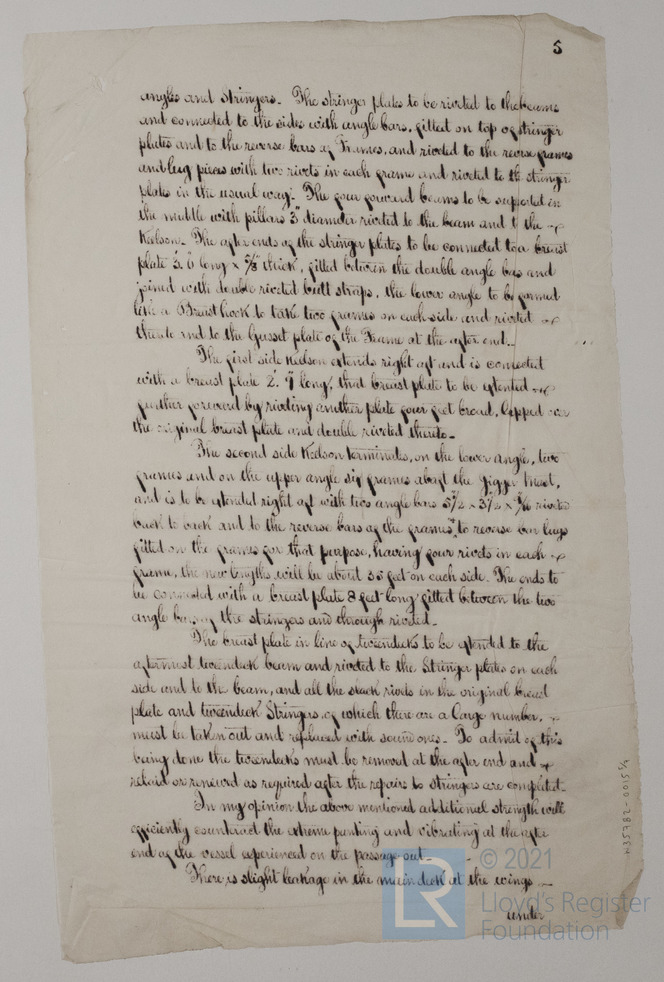 5
angles and Stringers. The stringer plates to be riveted to the beams
and connected to the sides with angle bars, fitted on top of stringer
plates and to the reverse bars of Frames, and riveted to the reverse frames
and lug pieces with two rivets in each frame and riveted to the stringer
plates in the usual way. The four forward beams to be supported in
the middle with pillars 3" diameter riveted to the beam and to the
Keelson. The after ends of the stringer plates to be connected to a breast
plate 3. 6 long x 5/8 thick, fitted between the double angle bars and
joined with double riveted butt straps, the lower angle to be formed
like a Breast hook to take two frames on each side and riveted
thereto and to the Gusset plate of the Frame at the after end.
The first side Keelson extends right aft and is connected
with a breast plate 2'. long, that breast plate to be extended
further forward by riveting another plate four feet broad, lapped over
the original breast plate and double riveted thereto.
The second side Keelson terminates, on the lower angle, two
frames and on the upper angle six frames abaft the Jigger Mast,
and is to be extended right aft with two angle bars 5 1/2 x 3 1/2 x riveted
back to back and to the reverse bars of the frames to reverse bar lugs
fitted on the frames for that purpose, having four rivets in each
frame, the new lengths will be about 35 feet on each side. The ends to
be connected with a breast plate 8 feet long fitted between the two
angle bars of the stringers and through riveted.
The breast plate in line of tweendecks to be extended to the
aftermost tweendeck beam and riveted to the Stringer plates on each
side and to the beam, and all the slack rivets in the original breast
plate and tweendeck Stringers, of which there are a large number,
must be taken out and replaced with sound ones. To admit of this
being done the tweendecks must be removed at the after end and
relaid or renewed as required after the repairs to stringers are completed.
In my opinion the above mentioned additional strength will
efficiently counteract the extreme panting and vibrating at the after
end of the vessel experienced on the passage out.
There is slight leakage in the main deck at the wings
under
H35782-0015
© 2021
LR
Lloyd's Register
Foundation